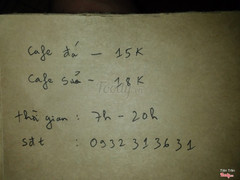 Cafe đá – 15K
Cafe sữa – 18K
thời gian : 7h – 20h
sđt : 0932313631